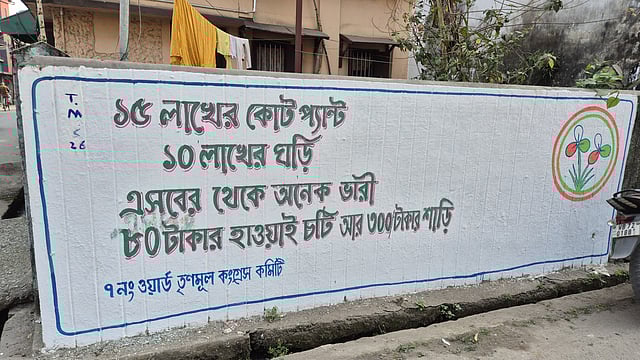 T.
M
C
26
১৫ লাখের কোট প্যান্ট
১০ লাখের ঘড়ি
এসবের থেকে অনেক ভারী
৮০টাকার হাওয়াই চটি আর ৩০০টাকার শাড়ি
৭নং ওয়ার্ড তৃণমূল কংগ্রেস কমিটি